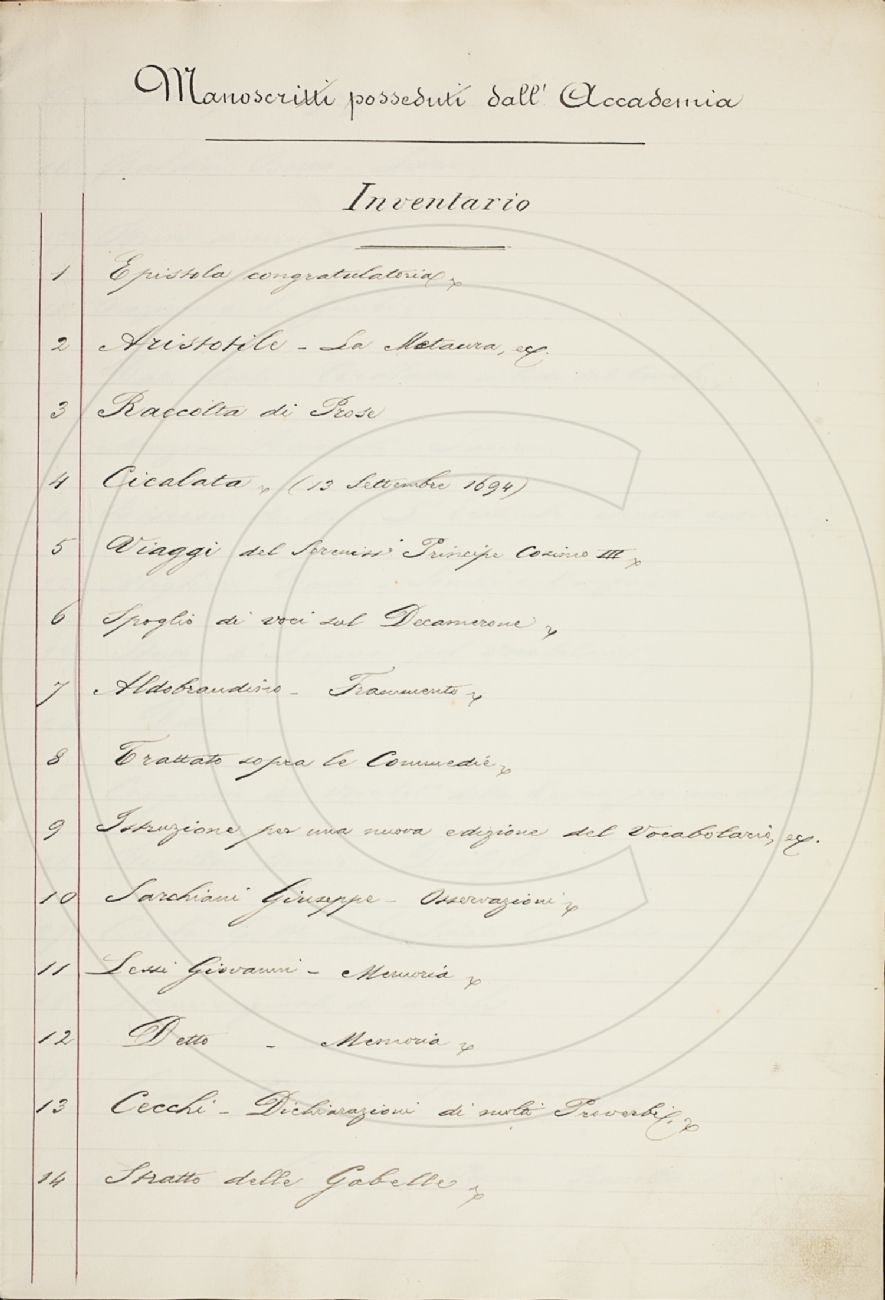 Manoscritti posseduti dall' Accademia
Inventario
1 Epistola congratulatoria
2 Aristotile - La Metaura, ec.
3 Raccolta di Prose
4 Cicalata (13 Settembre 1694)
5 Viaggi del Sereniss° Principe Cosimo III
6 Spoglio di voci sul Decamerone
7 Aldobrandino - Frammento
8 Trattato sopra le Commedie
9 Istruzione per una nuova edizione del Vocabolario, ec.
10 Sarchiani Giuseppe - Osservazioni
11 Lessi Giovanni - Memoria
12 Detto - Memoria
13 Cecchi - Dichiarazioni di molti Proverbi
14 Stratto delle Gabelle